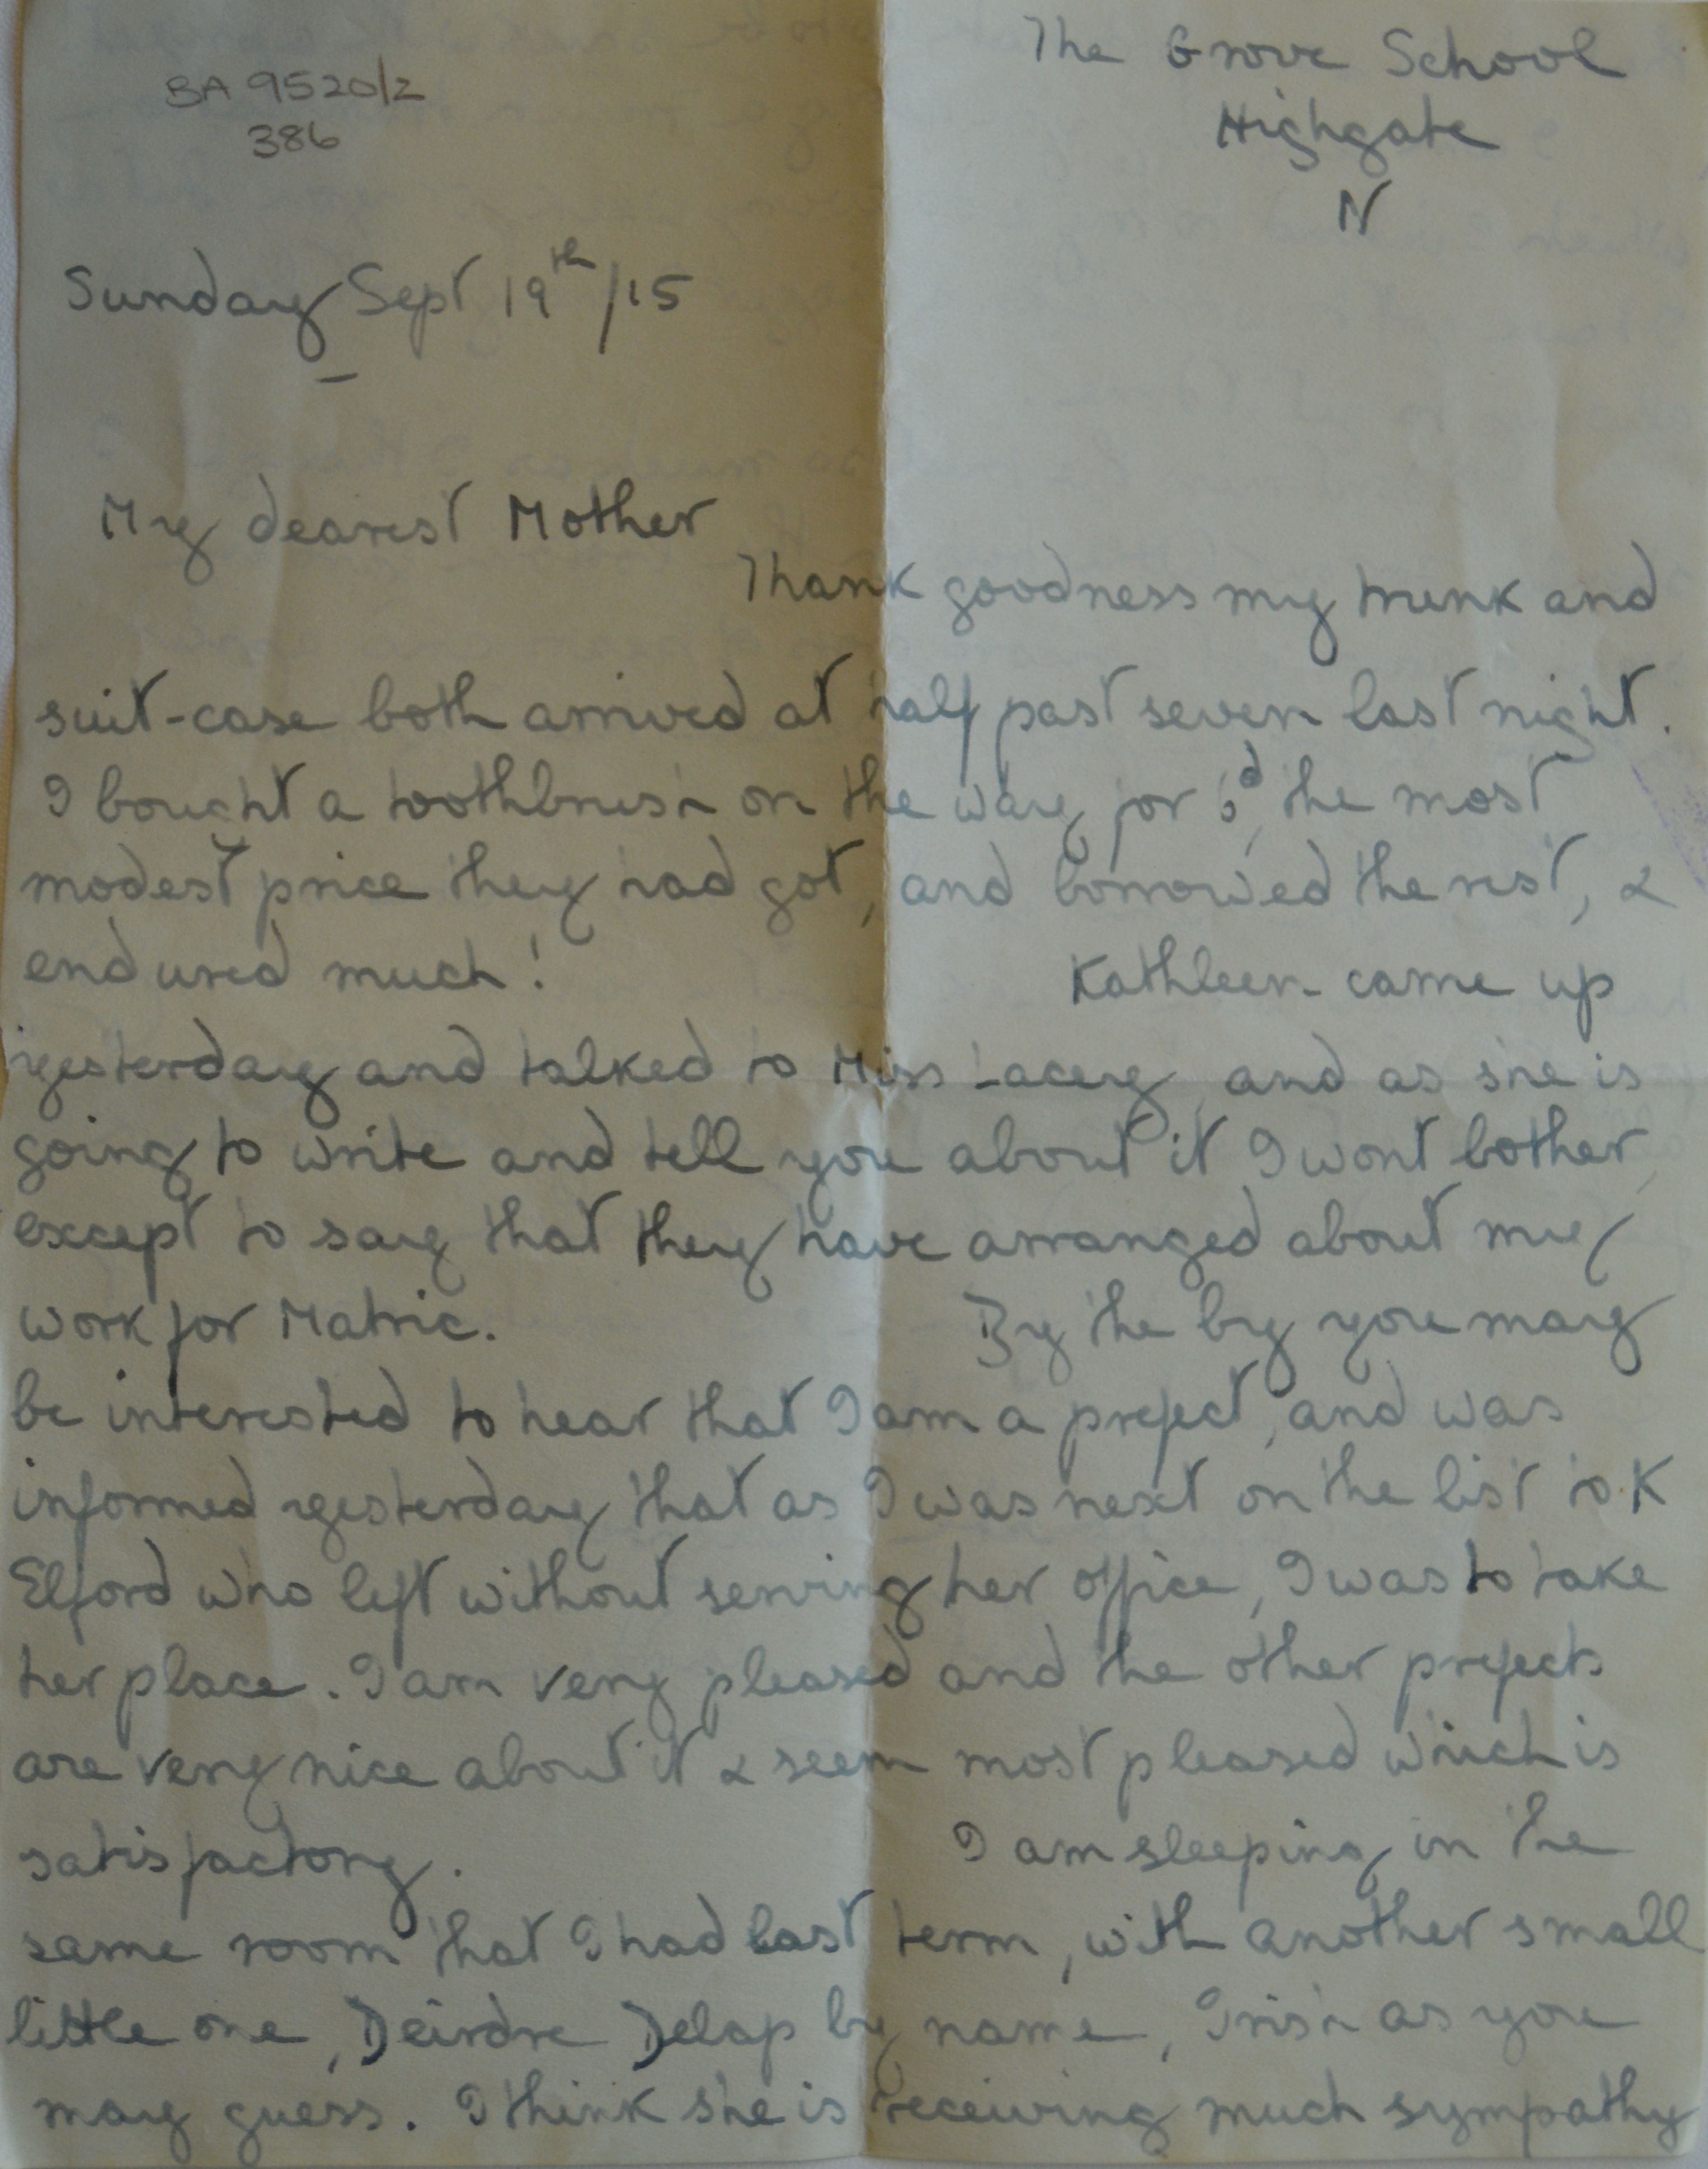 BA 9520/2
386
The Grove School
Highgate
N
Sunday Sept 19th/15
My dearest Mother
Thank goodness my trunk and
suit-case both arrived at half past seven last night.
I bought a toothbrush on the way for 6d, the most
modest price they had got, and borrowed the rest, &
endured much! Kathleen came up
yesterday and talked to Miss Lacey, and as she is
going to write and tell you about it I wont bother,
except to say that they have arranged about my
work for Matric. By the by you may
be interested to hear that I am a prefect, and was
informed yesterday that as I was next on the list to K
Elford who left without serving her office, I was to take
her place. I am very pleased and the other prefects
are very nice about it & seem most pleased which is
satisfactory. I am sleeping in the
same room that I had last term, with another small
little one, Deirdre Delap by name, Irish as you
may guess. I think she is receiving much sympathy